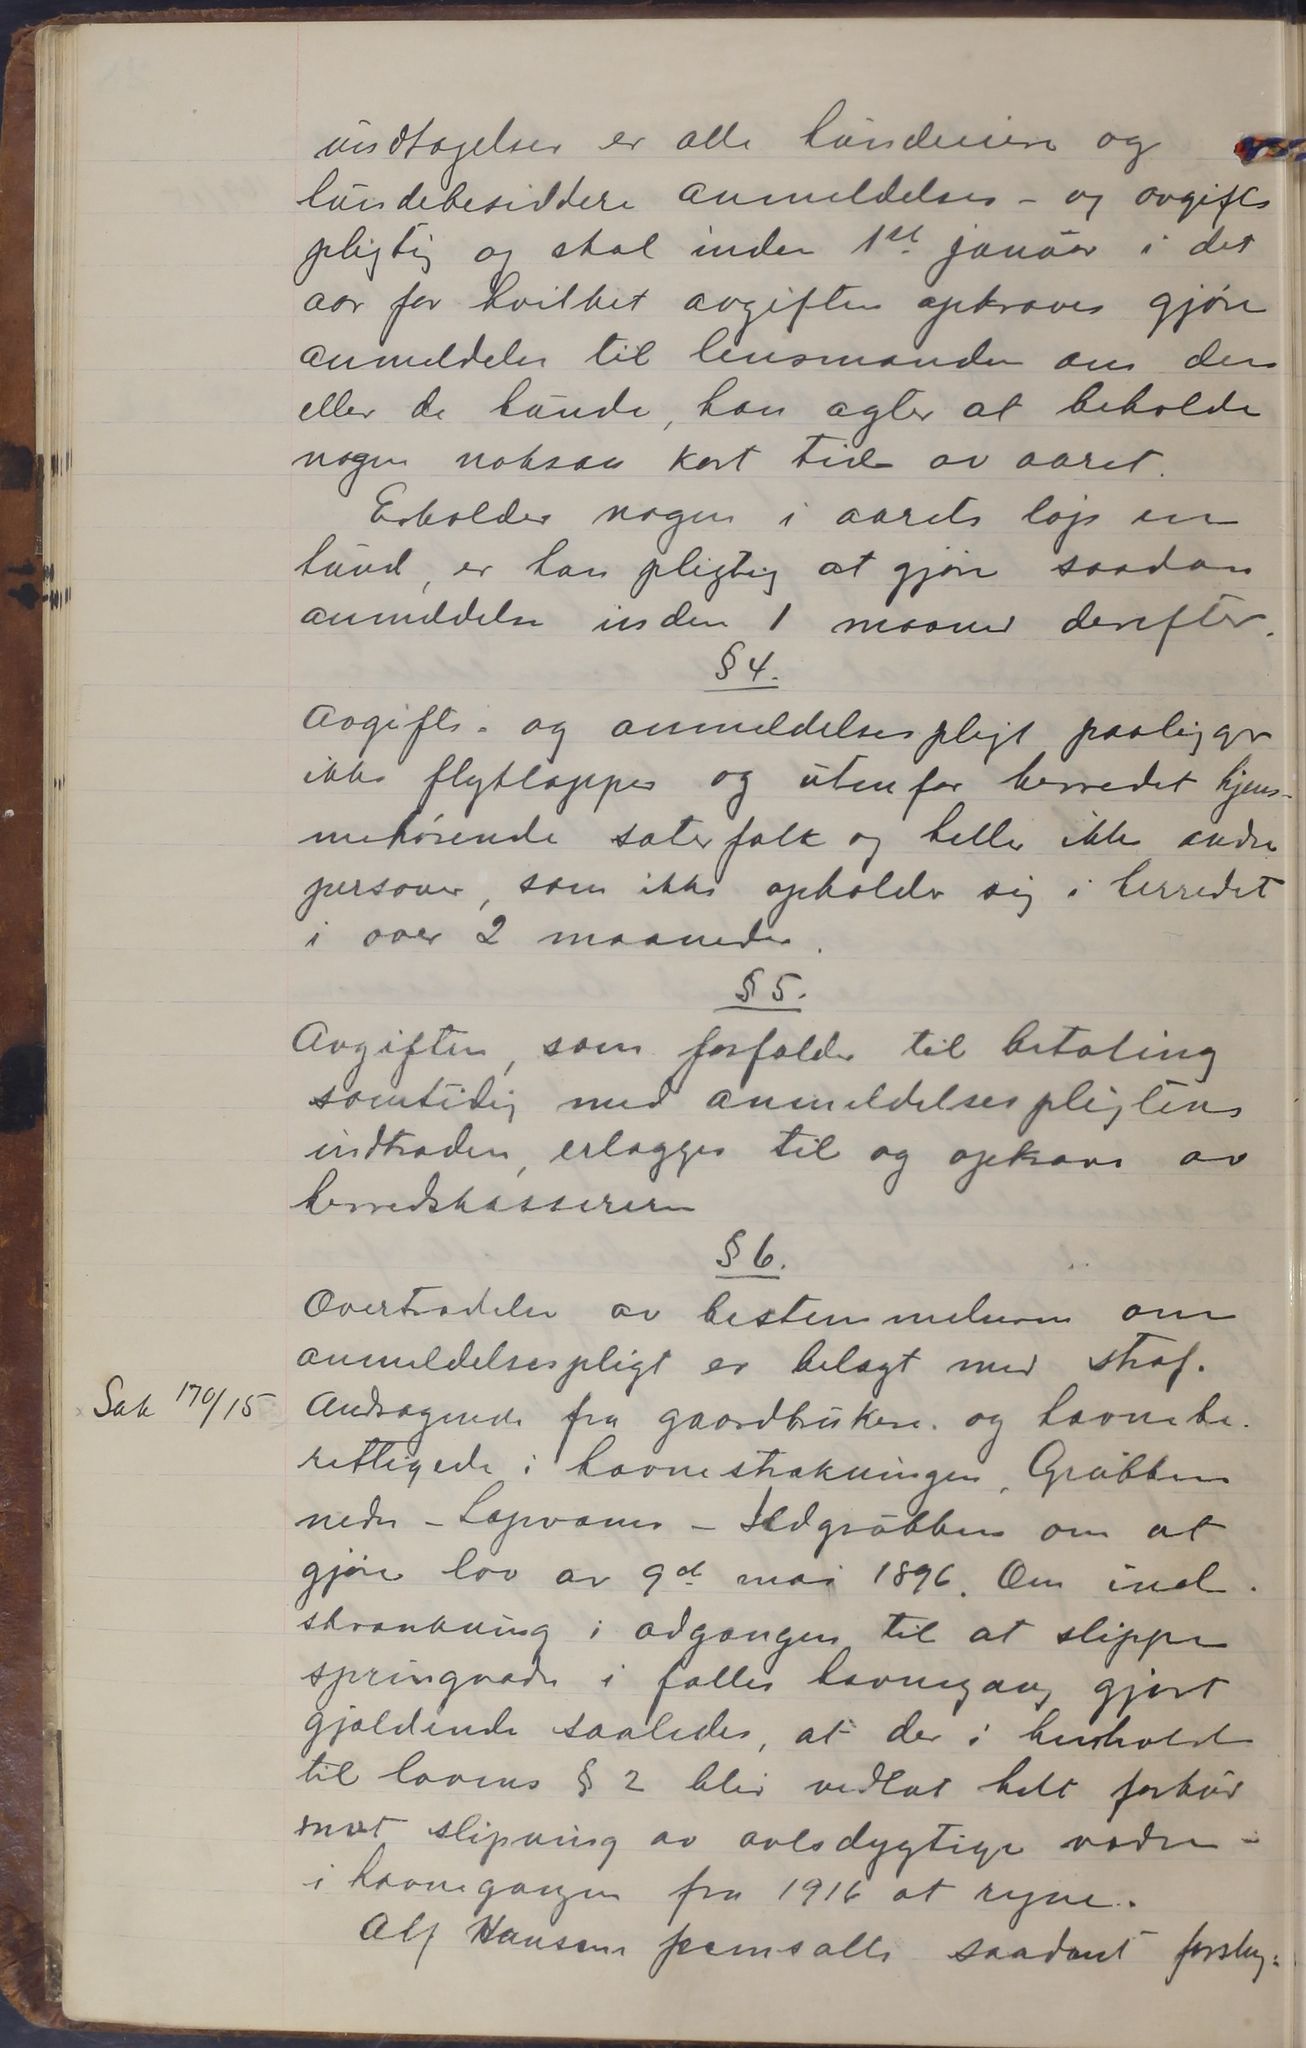 undtagelser er alle hundeeiere og
hundebesiddere anmeldelses- og avgifts
pligtig og skal inden 1st januar i det
aar for hvilket avgiften opkræves gjøre
anmeldelse til lensmanden om den
eller de hunde, han agter at beholde
nogen noksaa kort tid av aaret.
Erholder nogen i aarets løp en
hund, er han pligtig at gjøre saadan
anmeldelse inden 1 maaned derefter.
§ 4.
Avgifts- og anmeldelsespligt paaligger
ikke flytlapper og utenfor herredet hjem-
mehørende sæterfolk og heller ikke andre
personer, som ikke opholder sig i herredet
i over 2 maaneder.
§ 5.
Avgiften, som forfalder til betaling
samtidig med anmeldelsespligtens
indtræden, erlægges til og opkræves av
herredskassereren
§ 6.
Overtrædelse av bestemmelserne om
anmeldelsespligt er belagt med straf.
Sak 170/15
Andragende fra gaardbrukere og havnebe-
rettigede i havnestrækningen, Grubben
nedre - Lapvann - Ildgrubben om at
gjøre lov av 9de mai 1896. Om ind-
skrænkning i adgangen til at slippe
springvædre i fælles havnegang gjort
gjældende saaledes, at der i henhold
til lovens § 2 blir vedtat helt forbud
mot slipning av avlsdygtige vædre
i havnegangen fra 1916 at regne.
Alf Hansen fremsatte saadant forslag: